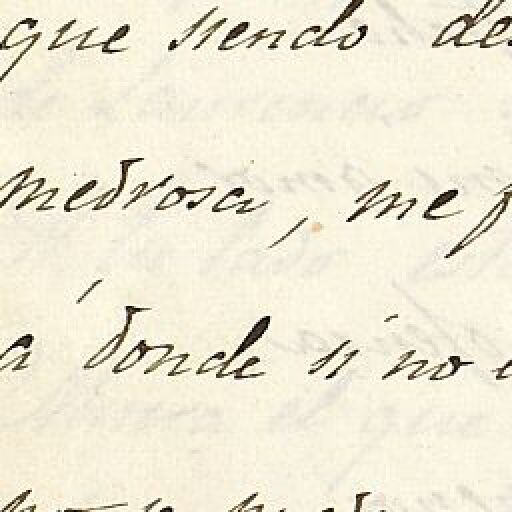 que siendo de
medrosa, me
á donde si no